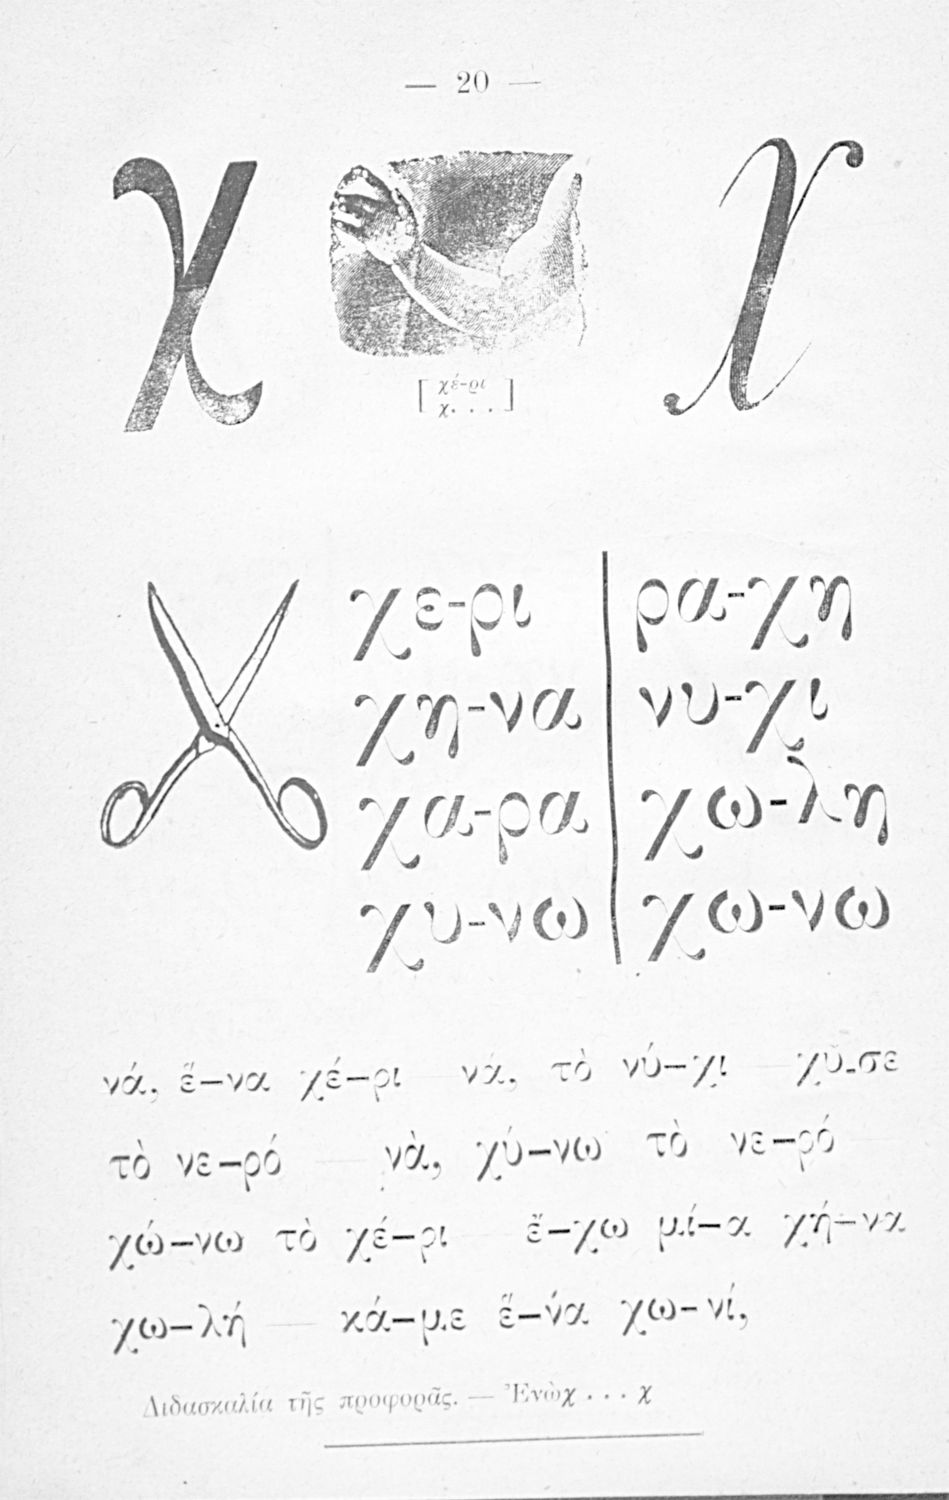 — 20 —
χ χ
[ χέ-ρι
χ. . . ]
χε-ρι
χη-να
χα-ρα
χυ-νω
ρα-χη
νυ-χι
χω-λη
χω-νω
νά, ἕ–να χέ–ρι — νά, τὸ νύ–χι — χῦ-σε
τὸ νε–ρό — νὰ, χύ–νω τὸ νε–ρό —
χώ–νω τὸ χέ–ρι — ἔ–χω μί–α χή–να
χω–λή — κά–με ἕ–να χω–νί,
Διδασκαλία τῆς προφορᾶς. — Ἐνὼχ . . . χ